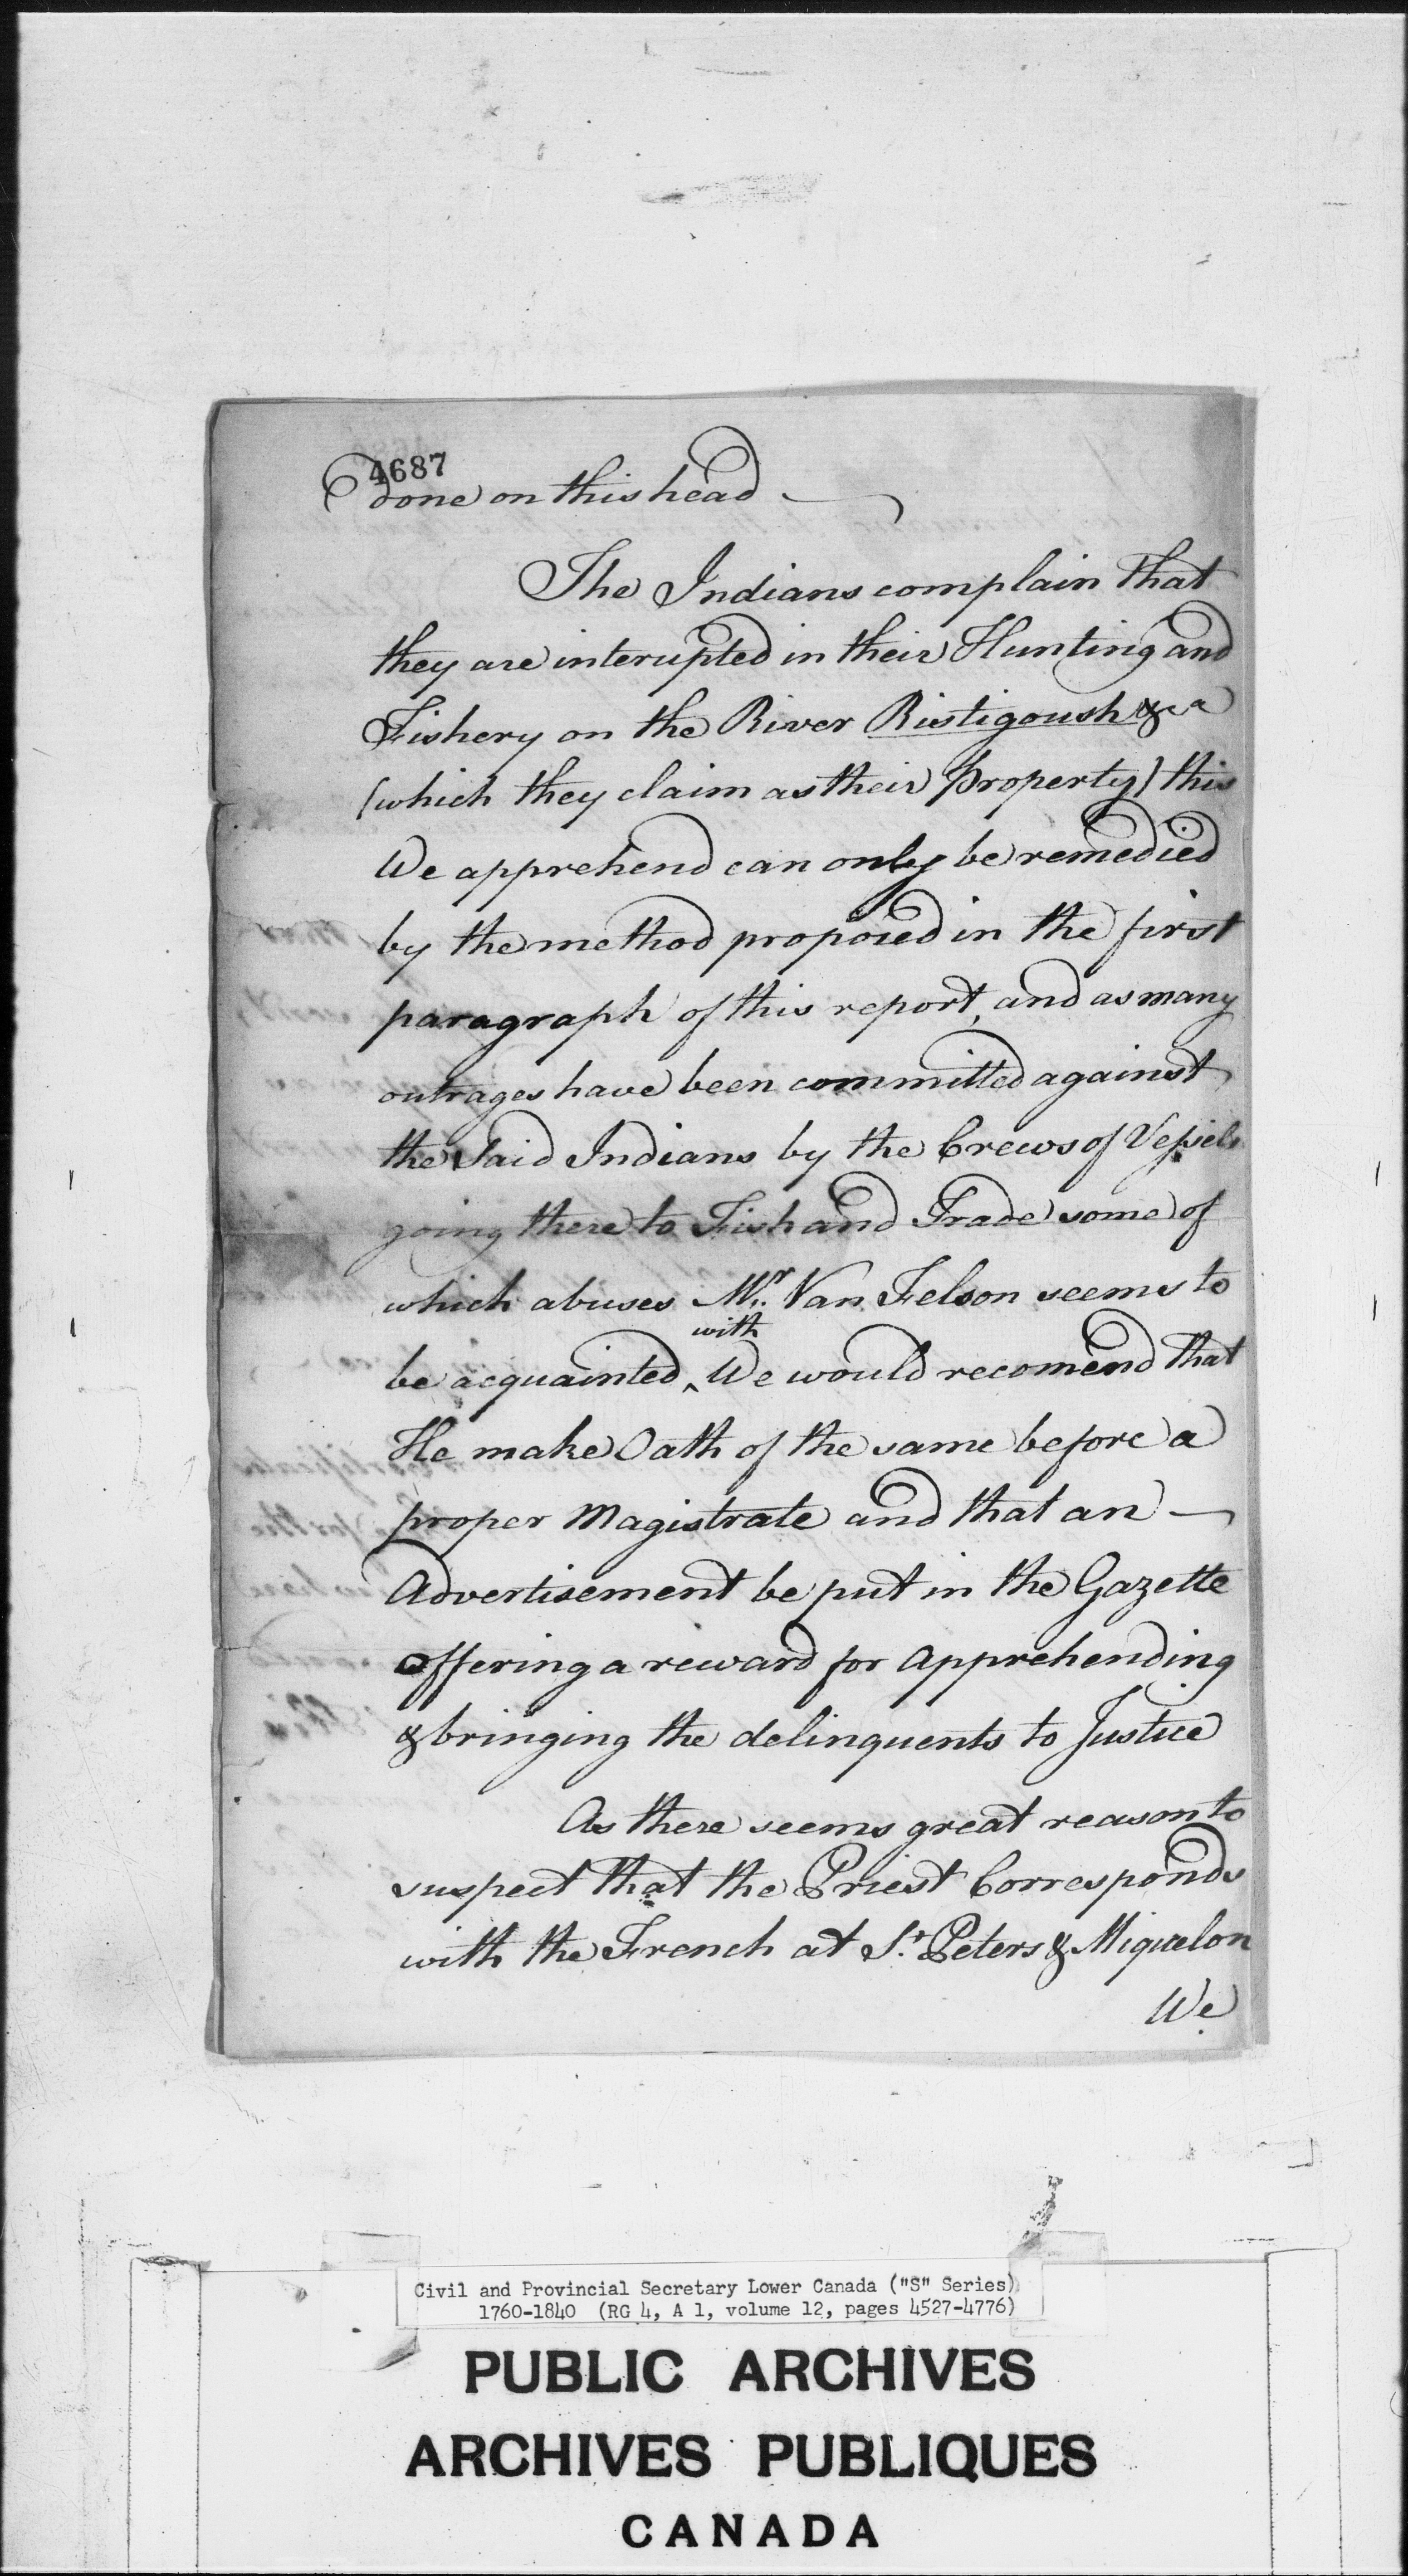 4687
done on this head
The Indians complain that
they are interupted in their Hunting and
Fishery on the River Ristigoush &ca
(which they claim as their Property) this
We apprehend can only be remedied
by the method proposed in the first
paragraph of this report, and as many
outrages have been committed against
the Said Indians by the Crews of Vessels
going there to Fish and Trade some of
which abuses Mr. Van Felson seems to
with
be acquainted ^ We would recomend that
He make Oath of the same before a
proper Magistrate and that an —
Advertisement be put in the Gazette
offering a reward for Apprehending
& bringing the delinquents to Justice
As there seems great reason to
suspect that the Priest Corresponds
with the French at St. Peters & Miquelon
We
Civil and Provincial Secretary Lower Canada ("S" Series)
1760-1840 (RG 4, A 1, volume 12, pages 4527-4776)
PUBLIC ARCHIVES
ARCHIVES PUBLIQUES
CANADA